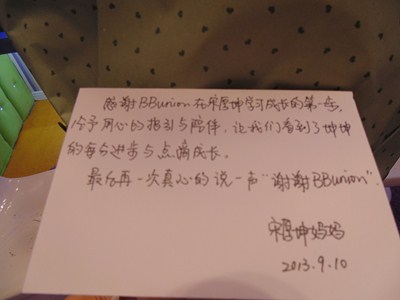 感谢BBunion在宋雪坤学习成长的第一步,
给予用心的指引与陪伴,让我们看到了坤坤
的每分进步与点滴成长。
最后再一次真心的说一声“谢谢BBunion”.
宋雪坤妈妈
2013.9.10